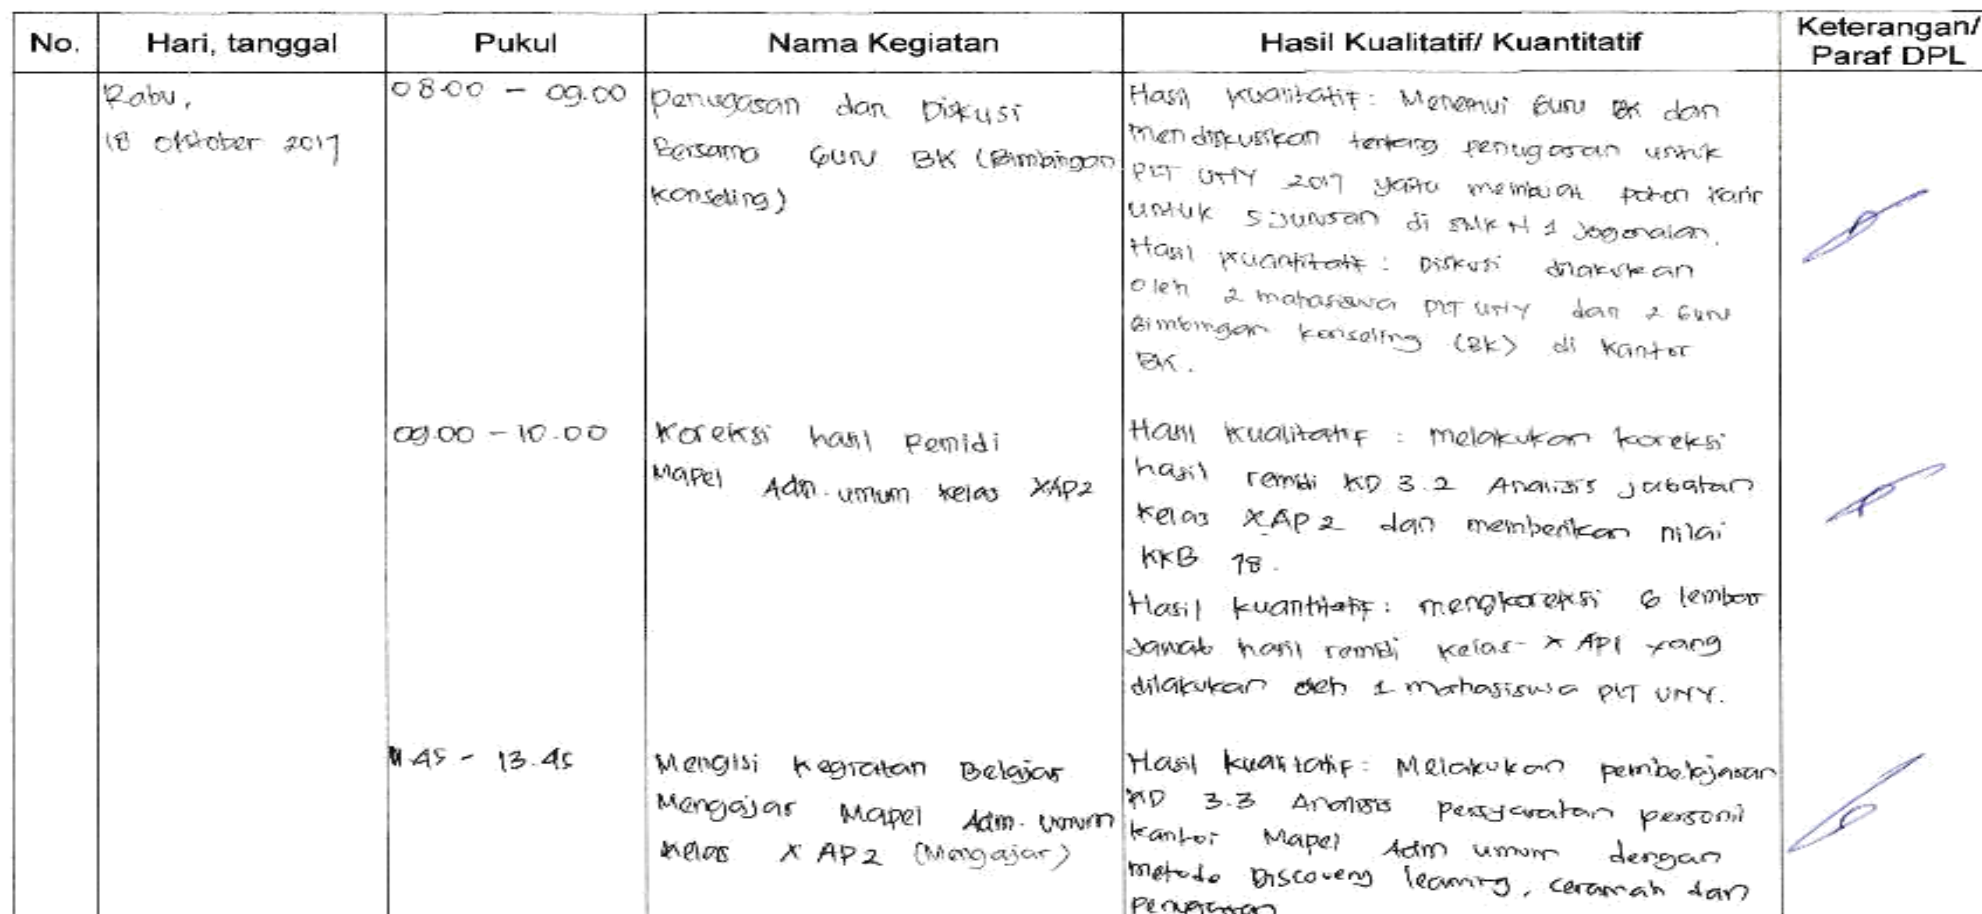 No. Hari, tanggal Pukul Nama Kegiatan Hasil Kualitatif/ Kuantitatif Keterangan/
Paraf DPL
Rabu,
18 Oktober 2017
08.00 - 09.00
penugasan dan Diskusi
Bersama Guru BK (Bimbingan
Konseling)
Hasil kualitatif: Menemui Guru BK dan
mendiskusikan tentang penugasan untuk
PLT UNY 2017 yaitu membuat pohon karir
untuk 5 jurusan di SMK N 1 Jogonalan.
Hasil kuantitatif: Diskusi dilakukan
oleh 2 mahasiswa PLT UNY dan 2 Guru
Bimbingan konseling (BK) di Kantor
BK.
09.00 - 10.00
Koreksi hasil Remidi
Mapel Adm. umum kelas XAP2
Hasil Kualitatif : melakukan koreksi
hasil remidi KD 3.2 Analisis jabatan
Kelas XAP2 dan memberikan nilai
KKB 78.
Hasil kuantitatif: mengkoreksi 6 lembar
jawab hasil remidi kelas X AP1 yang
dilakukan oleh 1 mahasiswa PLT UNY.
11.45 - 13.45
Mengisi Kegiatan Belajar
Mengajar Mapel Adm. umum
kelas X AP2 (Mengajar)
Hasil kualitatif: Melakukan pembelajaran
KD 3.3 Analisis persyaratan personil
kantor Mapel Adm umum dengan
metode Discovery learning, ceramah dan
penugasan